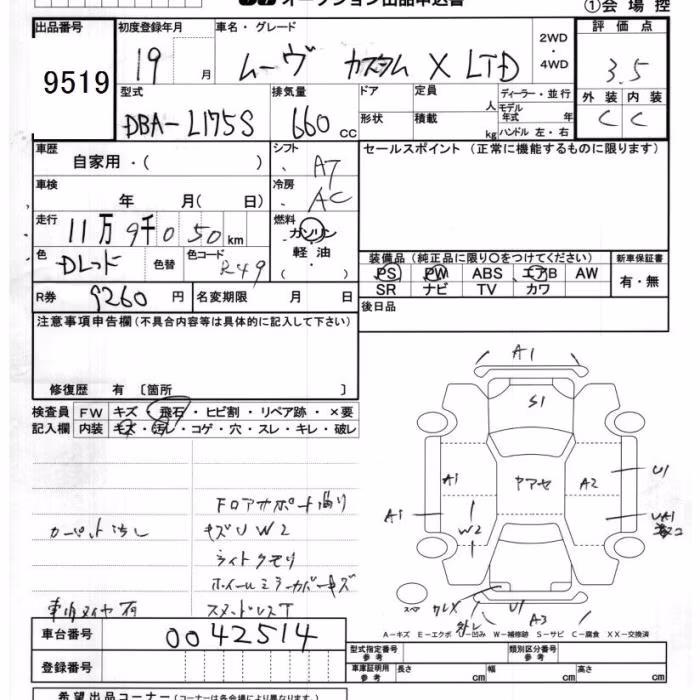 オークション出品申込書
①会場控
出品番号
9519
初度登録年月
19 月
車名・グレード
ムーヴ カスタム X LTD
2WD・4WD
評価点
3.5
外装 内装
C C
型式
DBA-L175S
排気量
660 cc
ドア
形状
定員 人
積載 kg
ディーラー・並行
モデル年式 年
ハンドル 左・右
車歴
自家用・( )
シフト
AT
車検
年 月( 日)
冷房
AC
走行
11万9千050km
燃料
ガソリン
軽油
・( )
色
Dレッド
色替
色コード
R49
R券
9260円
名変期限 月 日
セールスポイント(正常に機能するものに限ります)
装備品(純正品に限り○をつけてください)
PS PW ABS エアB AW
SR ナビ TV カワ
新車保証書
有・無
後日品
注意事項申告欄(不具合内容等は具体的に記入して下さい)
修復歴 有 〔箇所 〕
検査員記入欄
FW キズ・飛石・ヒビ割・リペア跡・×要
内装 キズ・汚レ・コゲ・穴・スレ・キレ・破レ
キズUW2
ライトクモリ
A1
S1
A1
ヤアセ
A2
U1
A1
W2
UA1
スペア
U1
A3
A-キズ E-エクボ U-凹み W-補修跡 S-サビ C-腐食 XX-交換済
車台番号
0042514
登録番号
型式指定番号 参考
類別区分番号 参考
車庫証明用 参考
長さ cm
幅 cm
高さ cm
希望出品コーナー(コーナーは各会場により異なります。)